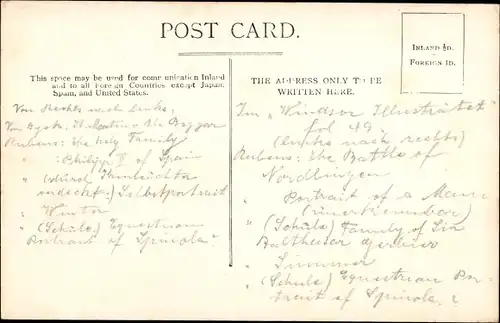 POST CARD.
INLAND ½D.
FOREIGN 1D.
This space may be used for communication Inland
and to all Foreign Countries except Japan,
Spain, and United States.
THE ADDRESS ONLY TO BE
WRITTEN HERE.
Von Rechts nach links,
Van Dyck, St. Martin & the Beggar
Rubens: the holy Family
" : Philipp II of Spain
" Selbstportrait
" Winter
" (Schule) Equestrian
Portrait of Spinola?
Im "Windsor Illustrated"
fol 49
(links nach rechts)
Rubens: the Battle of
Nördlingen
" Portrait of a Man
"(Schule) Family of Sir
Balthasar Gerbier
" Summer
"(Schule) Equestrian Por-
trait of Spinola?